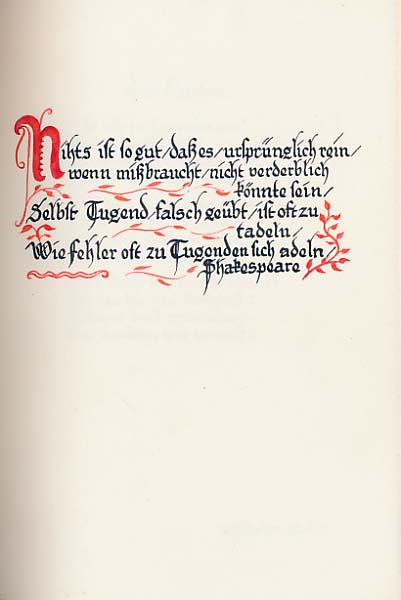 Nihts ist so gut/daß es/ursprünglich rein/
wenn mißbraucht/nicht verderblich
könnte sein/
Selbst Tugend/falsch geübt/ist oft zu
tadeln/
Wie fehler oft zu Tugenden sich adeln/
Shakespeare